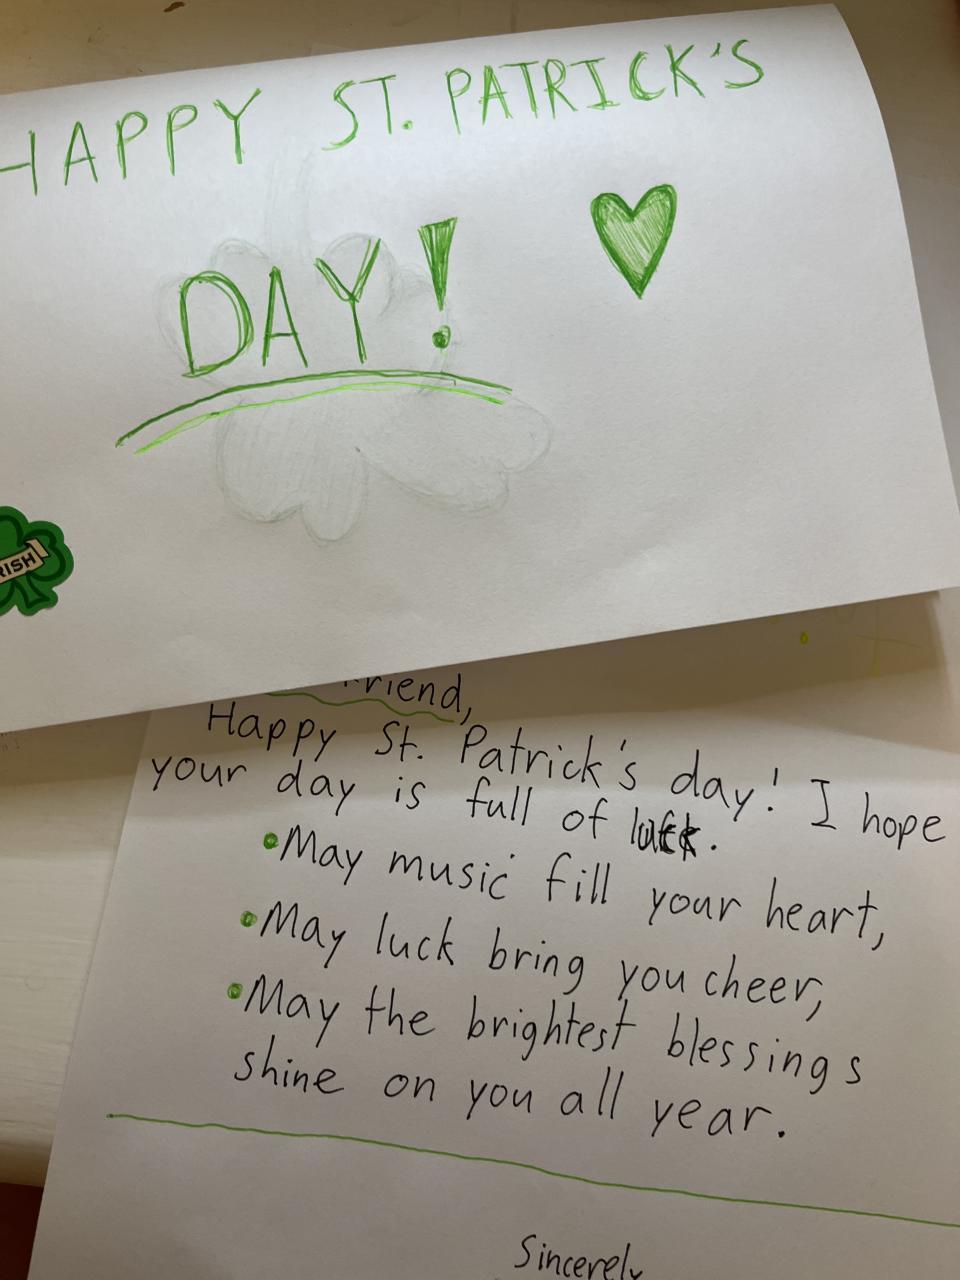 HAPPY ST. PATRICK'S
DAY!
RISH
friend,
Happy St. Patrick's day! I hope
your day is full of luck.
•May music fill your heart,
•May luck bring you cheer,
•May the brightest blessings
shine on you all year.
Sincerely